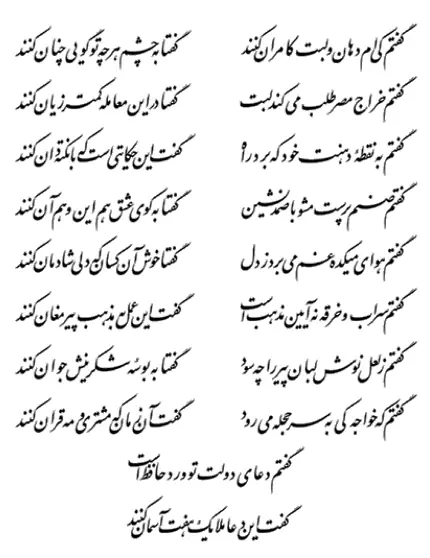 گفتم کی‌ام دهان و لبت کامران کنند گفتا به چشم هر چه تو گویی چنان کنند
گفتم خراج مصر طلب می کند لبت گفتا در این معامله کمتر زیان کنند
گفتم به نقطهٔ دهنت خود که برد راه گفت این حکایتی است که با نکته دان کنند
گفتم صنم پرست مشو با صمد نشین گفتا به کوی عشق هم این و هم آن کنند
گفتم هوای میکده غم می برد ز دل گفتا خوش آن کسان که دلی شادمان کنند
گفتم شراب و خرقه نه آیین مذهب است گفت این عمل به مذهب پیر مغان کنند
گفتم ز لعل نوش لبان پیر را چه سود گفتا به بوسهٔ شکرینش جوان کنند
گفتم که خواجه کی به سر حجله می رود گفت آن زمان که مشتری و مه قران کنند
گفتم دعای دولت تو ورد حافظ است
گفت این دعا ملایک هفت آسمان کنند